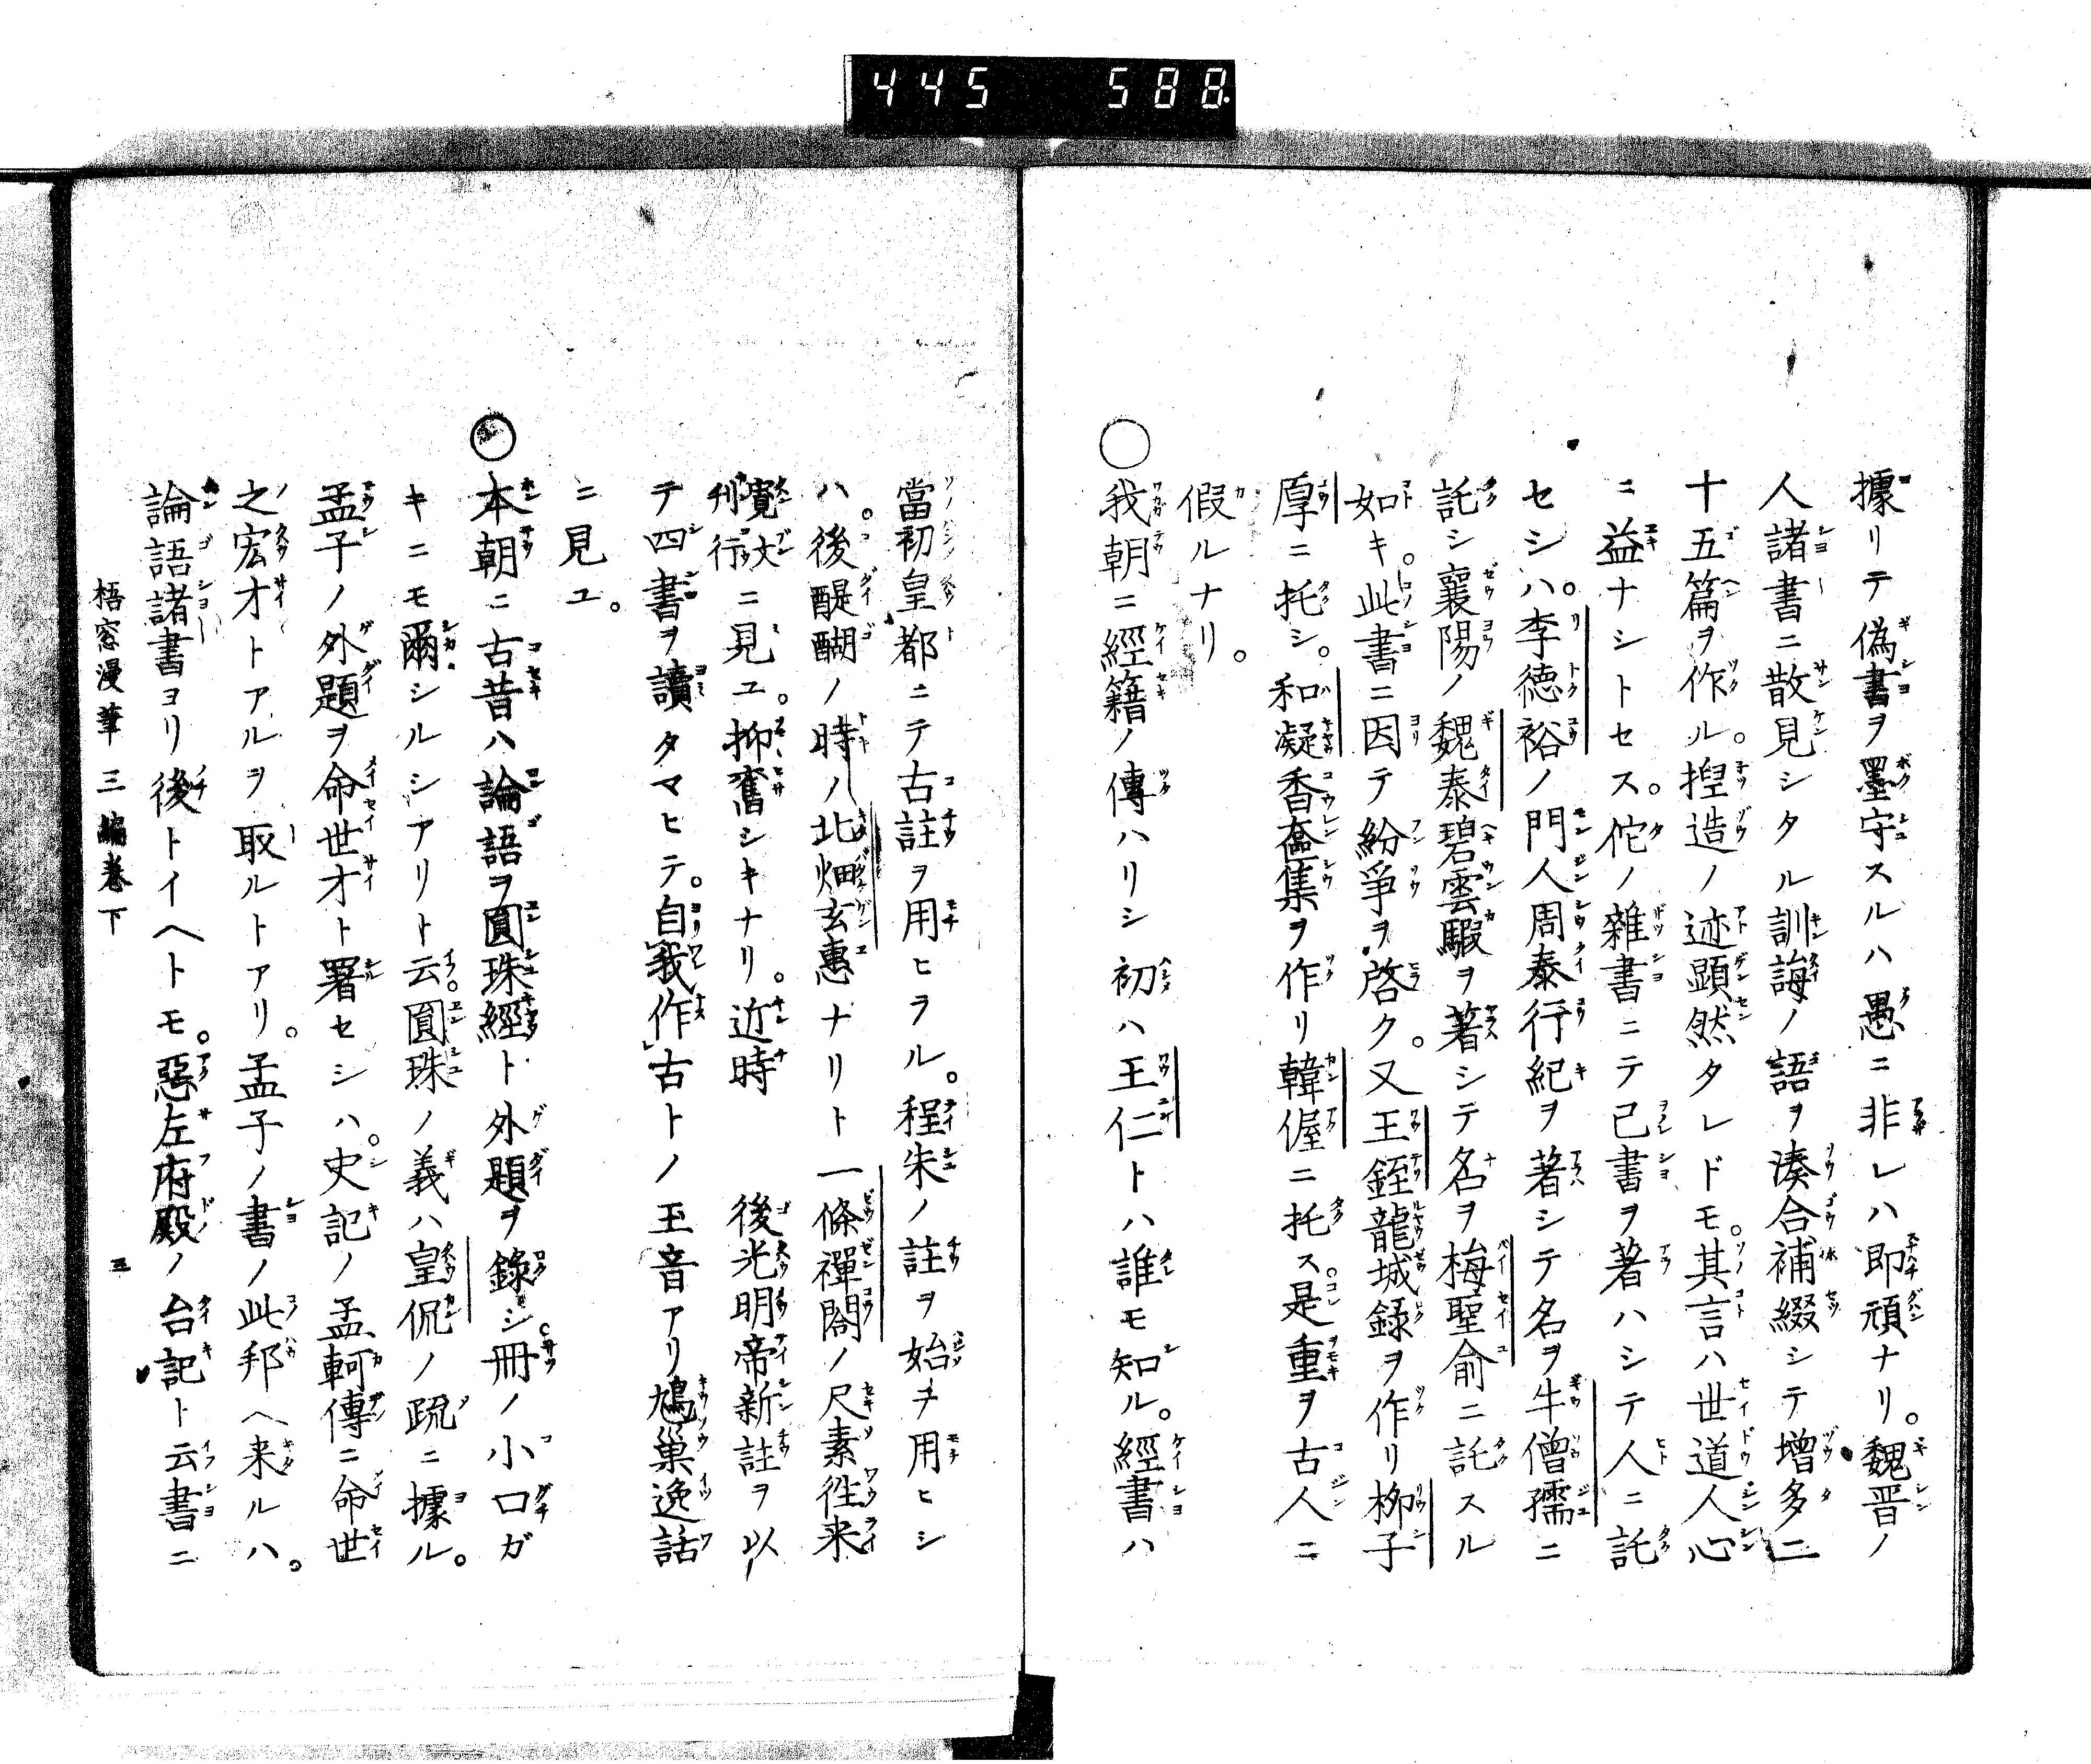 445 588
據リテ偽書ヲ墨守スルハ愚ニ非レハ即頑ナリ。魏晋ノ
人諸書ニ散見シタル訓誨ノ語ヲ湊合補綴シテ增多二
十五篇ヲ作ル。揑造ノ迹顕然タレドモ。其言ハ世道人心
ニ益ナシトセス。佗ノ雜書ニテ已書ヲ著ハシテ人ニ託
セシハ。李德裕ノ門人周秦行紀ヲ著シテ名ヲ牛僧孺ニ
託シ襄陽ノ魏泰碧雲騢ヲ著シテ名ヲ梅聖俞ニ託スル
如キ。此書ニ因テ紛爭ヲ啓ク。又王銍龍城錄ヲ作リ柳子
厚ニ托シ。和凝香奩集ヲ作リ韓偓ニ托ス是重ヲ古人ニ
假ルナリ。
○我朝ニ經籍ノ傳ハリシ初ハ王仁トハ誰モ知ル。經書ハ
當初皇都ニテ古註ヲ用ヒラル。程朱ノ註ヲ始テ用ヒシ
ハ。後醍醐ノ時ハ北畑玄惠ナリト一條禪閤ノ尺素徃来
刊行ニ見ユ。抑舊シキナリ。近時 後光明帝新註ヲ以
テ四書ヲ讀タマヒテ。自我作古トノ玉音アリ鳩巢逸話
ニ見ユ。
○本朝ニ古昔ハ論語ヲ圓珠經ト外題ヲ錄シ。冊ノ小口ガ
キニモ爾シルシアリト云。圓珠ノ義ハ皇侃ノ疏ニ據ル。
孟子ノ外題ヲ命世才ト署セシハ。史記ノ孟軻傳ニ命世
之宏才トアルヲ取ルトアリ。孟子ノ書ノ此邦ヘ来ルハ。
論語諸書ヨリ後トイヘトモ。惡左府殿ノ台記ト云書ニ
梧窓漫筆三編卷下 三